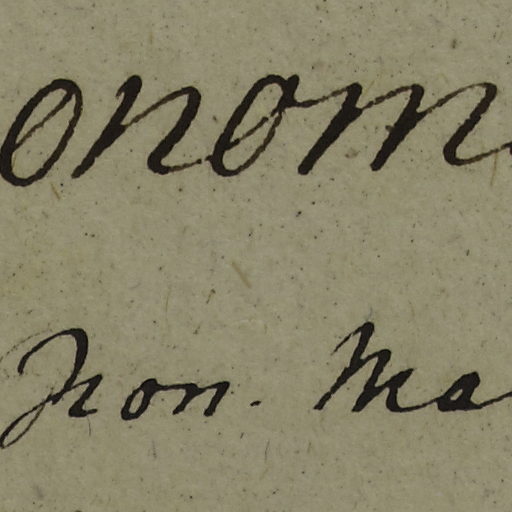 onom
Non. Ma